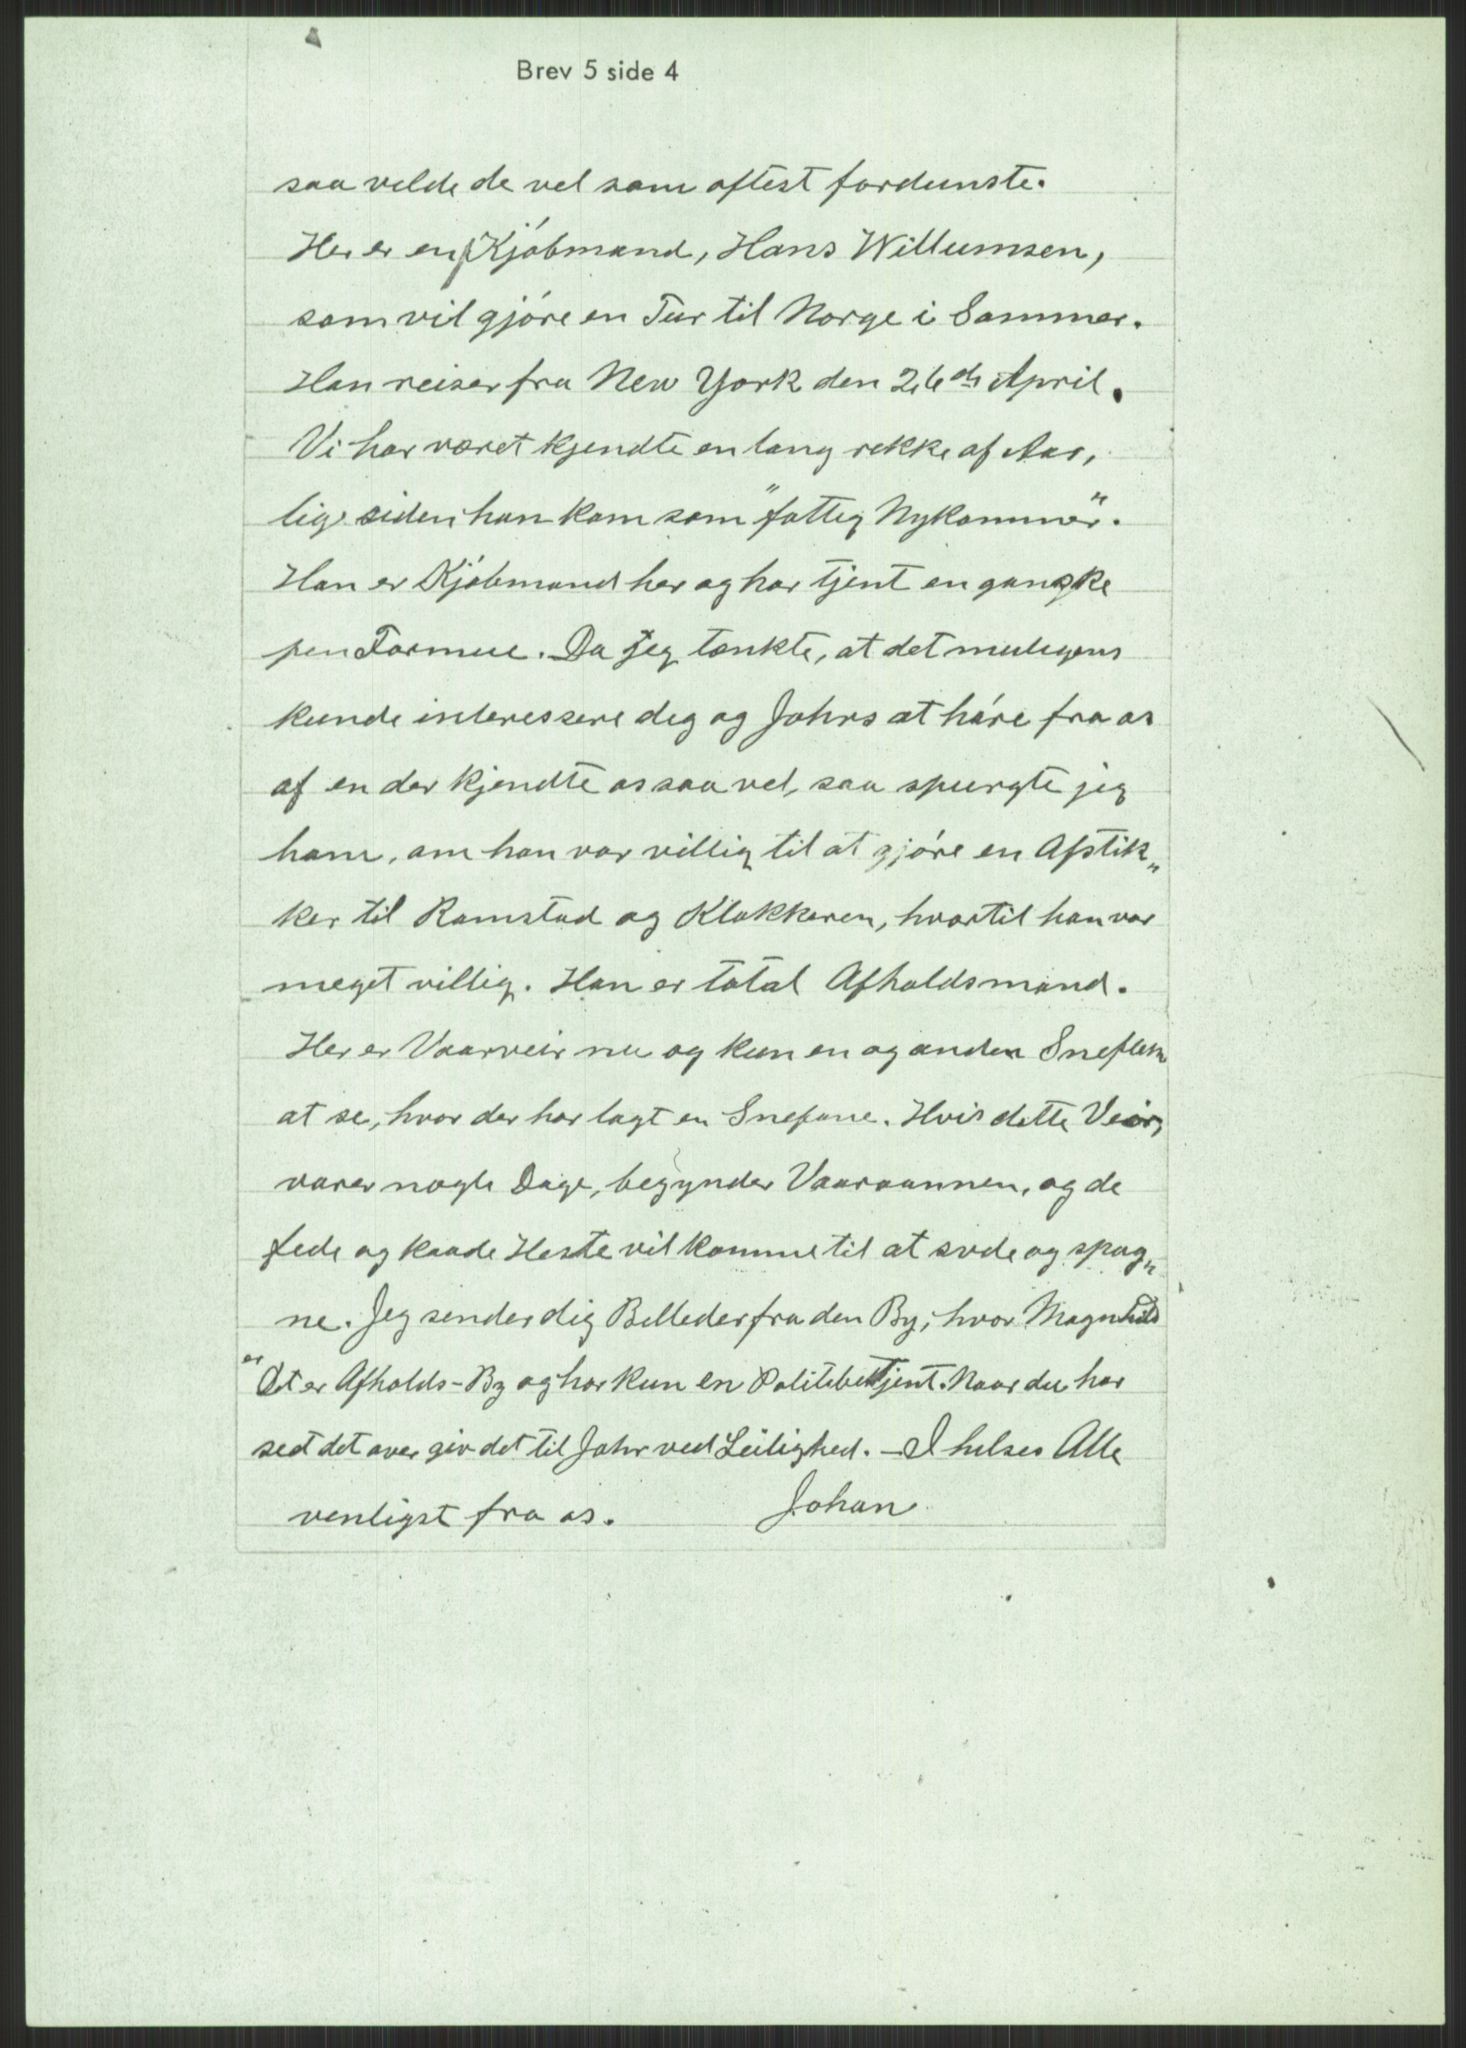 Brev 5 side 4
saa vilde de vel som oftest fordunste.
Her er en Kjóbmand, Hans Willumsen,
som vil gjóre en Tur til Norge i Sommer.
Han reiser fra New York den 26de April.
Vi har været kjendte en lang rekke af Aar,
lige siden han kom som "fattig Nykommer".
Han er Kjóbmand her og har tjent en ganske
pen Formue. Da jeg tænkte, at det muligens
kunde interessere dig og Johrs at hóre fra os
af en der kjendte os saa vel, saa spurgte jeg
ham, om han var villig til at gjóre en Afstik„
ker til Ramstad og Klokkeren, hvortil han var
meget villig. Han er total Afholdsmand.
Her er Vaarveir nu og kun en og anden Sneflek
at se, hvor der har lagt en Snefane. Hvis dette Veir,
varer nogle Dage, begynder Vaaraannen, og de
fede og kaade Heste vil komme til at svde og spag„
ne. Jeg sender dig Billeder fra den By, hvor Magnhild
er Det er Afholds-By og har kun en Politibetjent. Naar du har
seet det over giv det til Johr ved Leilighed. – I hilses Alle
venligst fra os. Johan